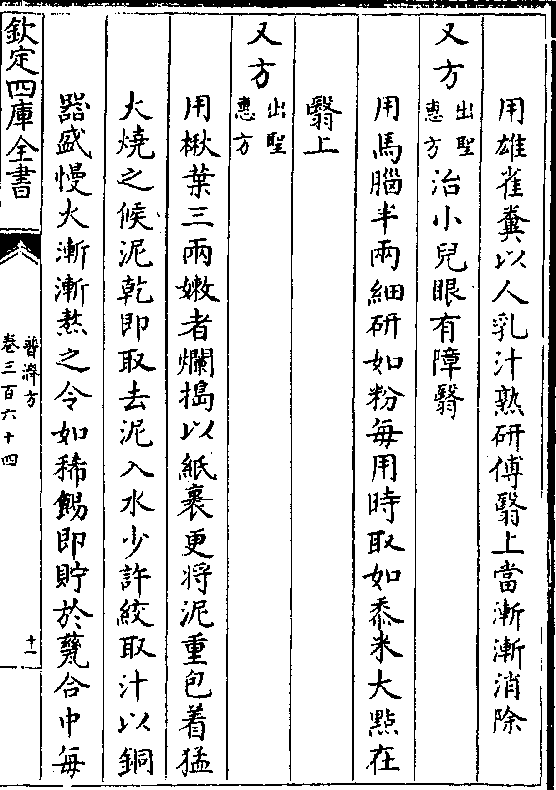 用雄雀糞以人乳汁熟研傅翳上當漸漸消除
又方出聖惠方治小兒眼有障翳
用馬腦半兩細研如粉每用時取如黍米大點在
翳上
又方出聖惠方
用楸葉三兩嫩者爛搗以紙裹更將泥重包着猛
火燒之候泥乾即取去泥入水少許絞取汁以銅
器盛慢火漸漸熬之令如稀餳即貯於甆合中每
欽定四庫全書
普濟方
卷三百六十四
十一